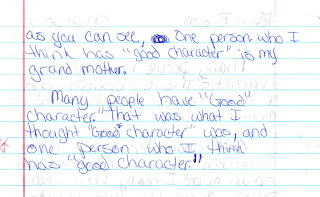 as you can see, One person who I
think has "good character" is my
grand mother.
Many people have "Good"
character." That was what I
thought "Good" character" was, and
one person who I think
has "good character."